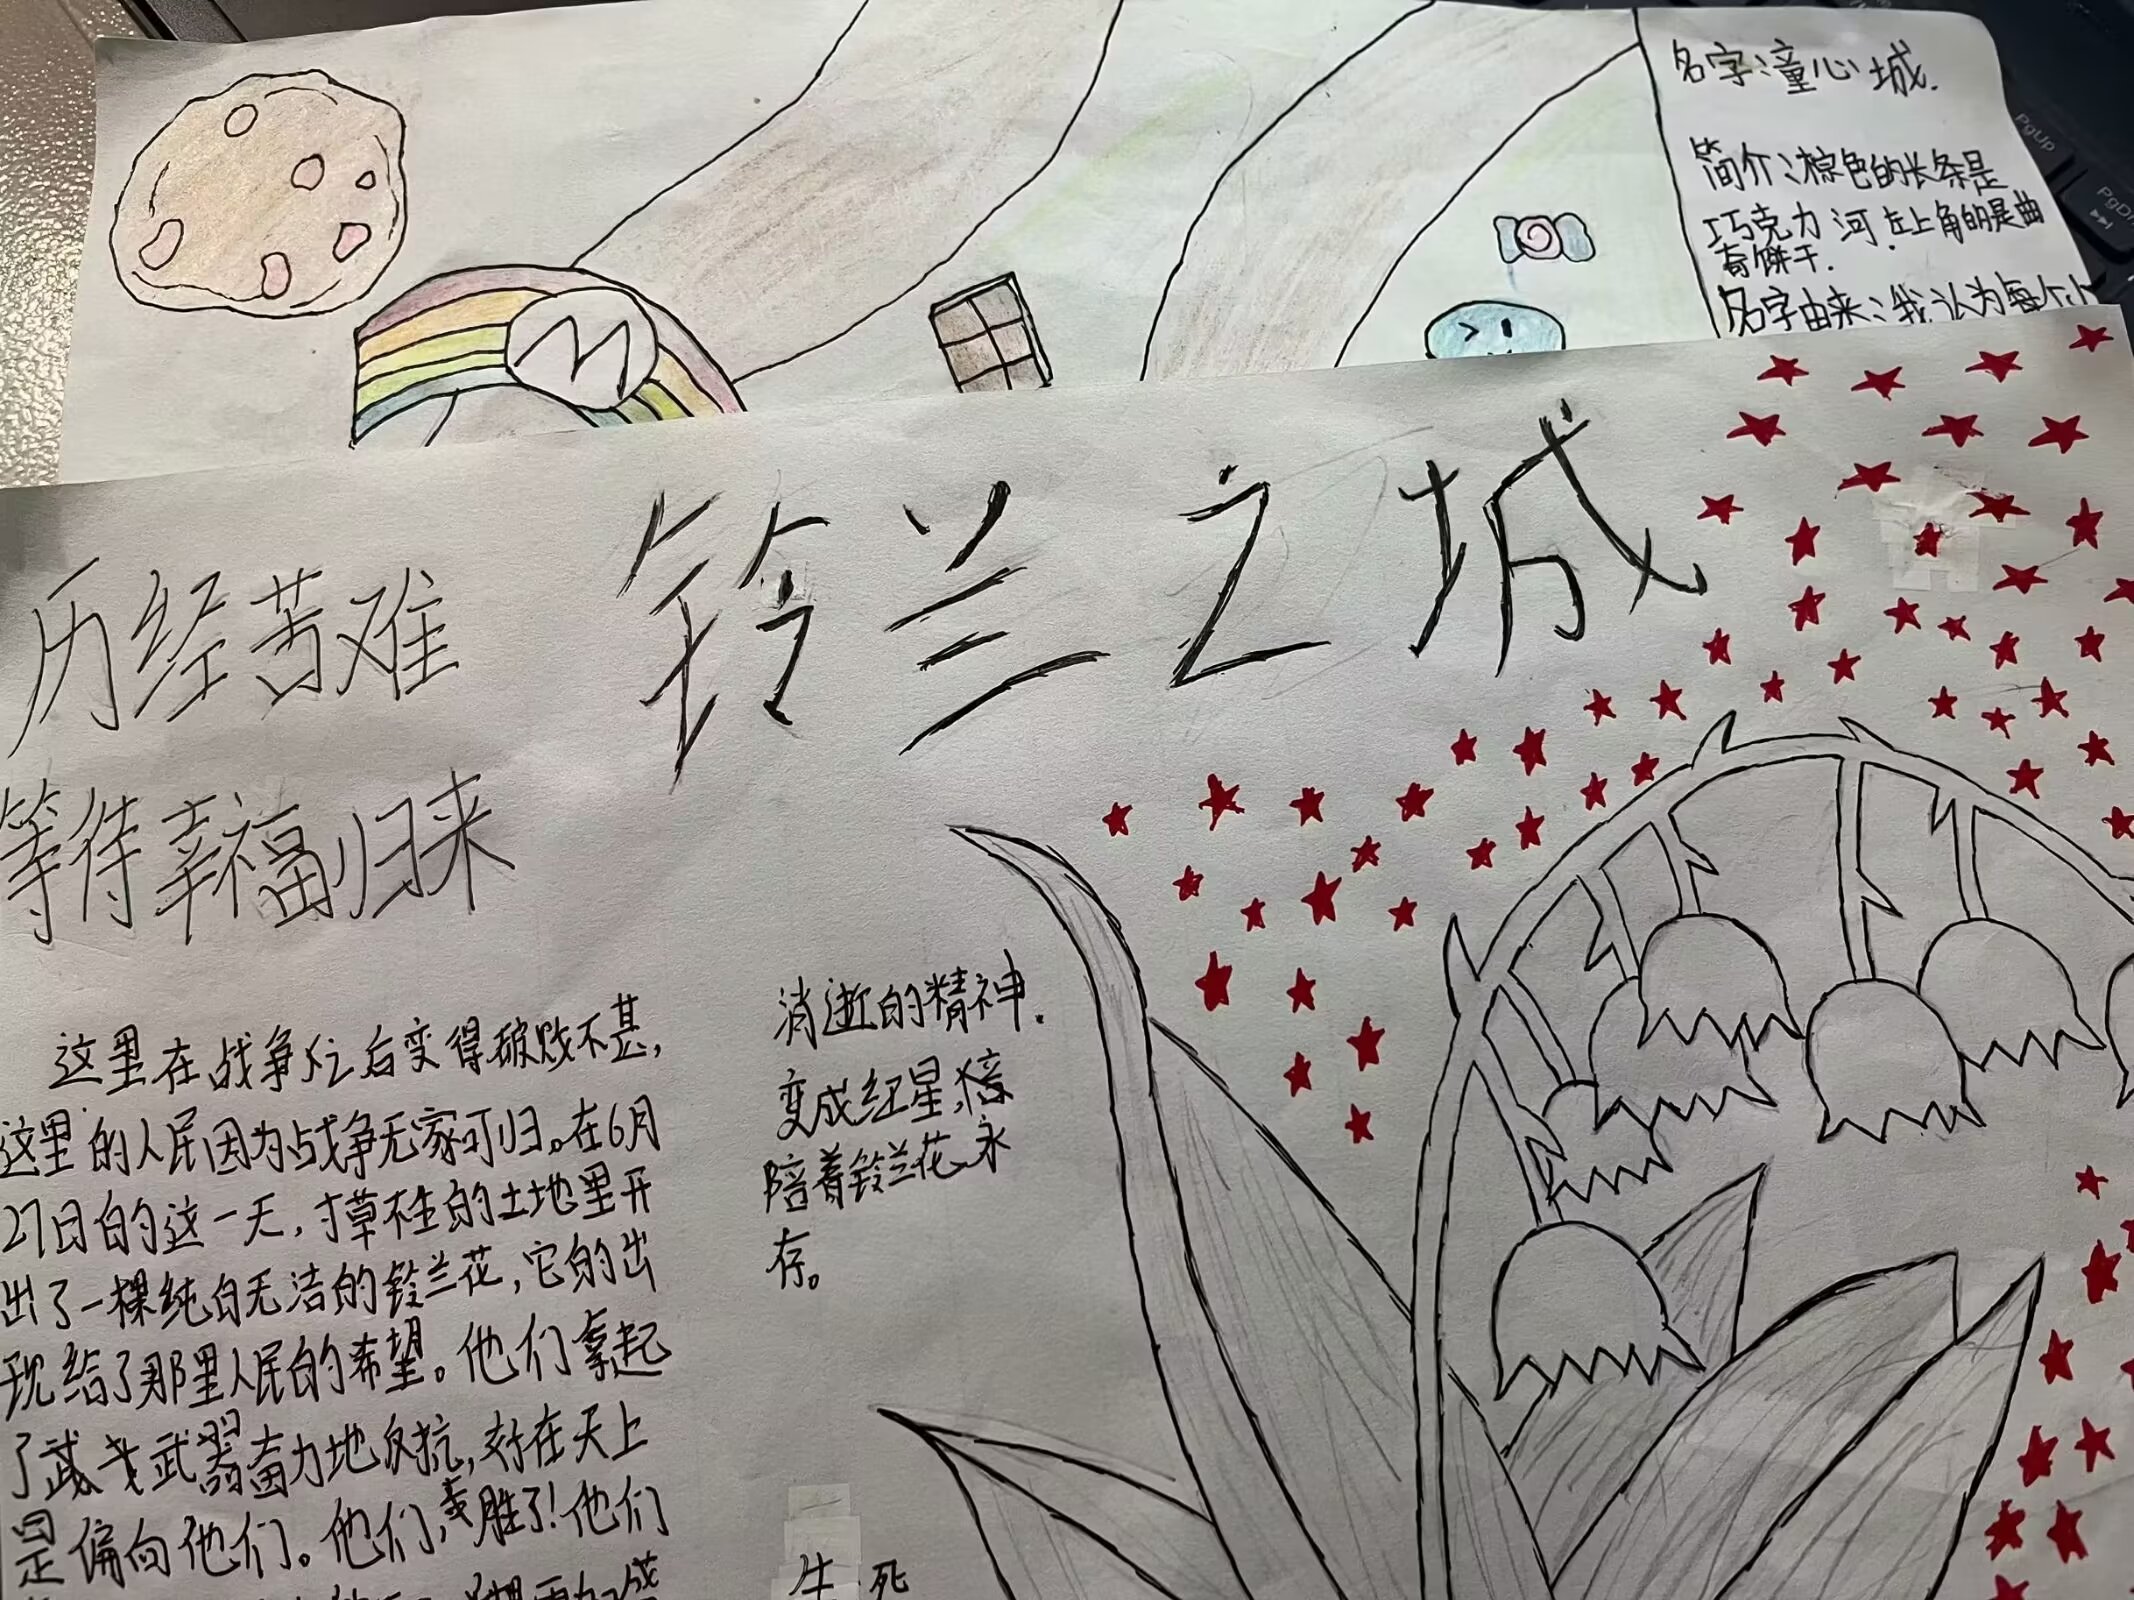 名字：童心城.
简介：棕色的长条是
巧克力河.左上角的是曲
奇饼干.
名字由来：我认为每个小
M
铃兰之城
历经苦难
等待幸福归来
这里在战争之后变得破败不甚,
这里的人民因为战争无家可归。在6月
27日的这一天,寸草不生的土地里开
出了一棵纯白无洁的铃兰花,它的出
现给了那里人民的希望。他们拿起
了武器奋力地反抗,好在天上
是偏向他们。他们,战胜了!他们
消逝的精神.
变成红星,
陪着铃兰花永
存。
生 死
PgUp
PgDn